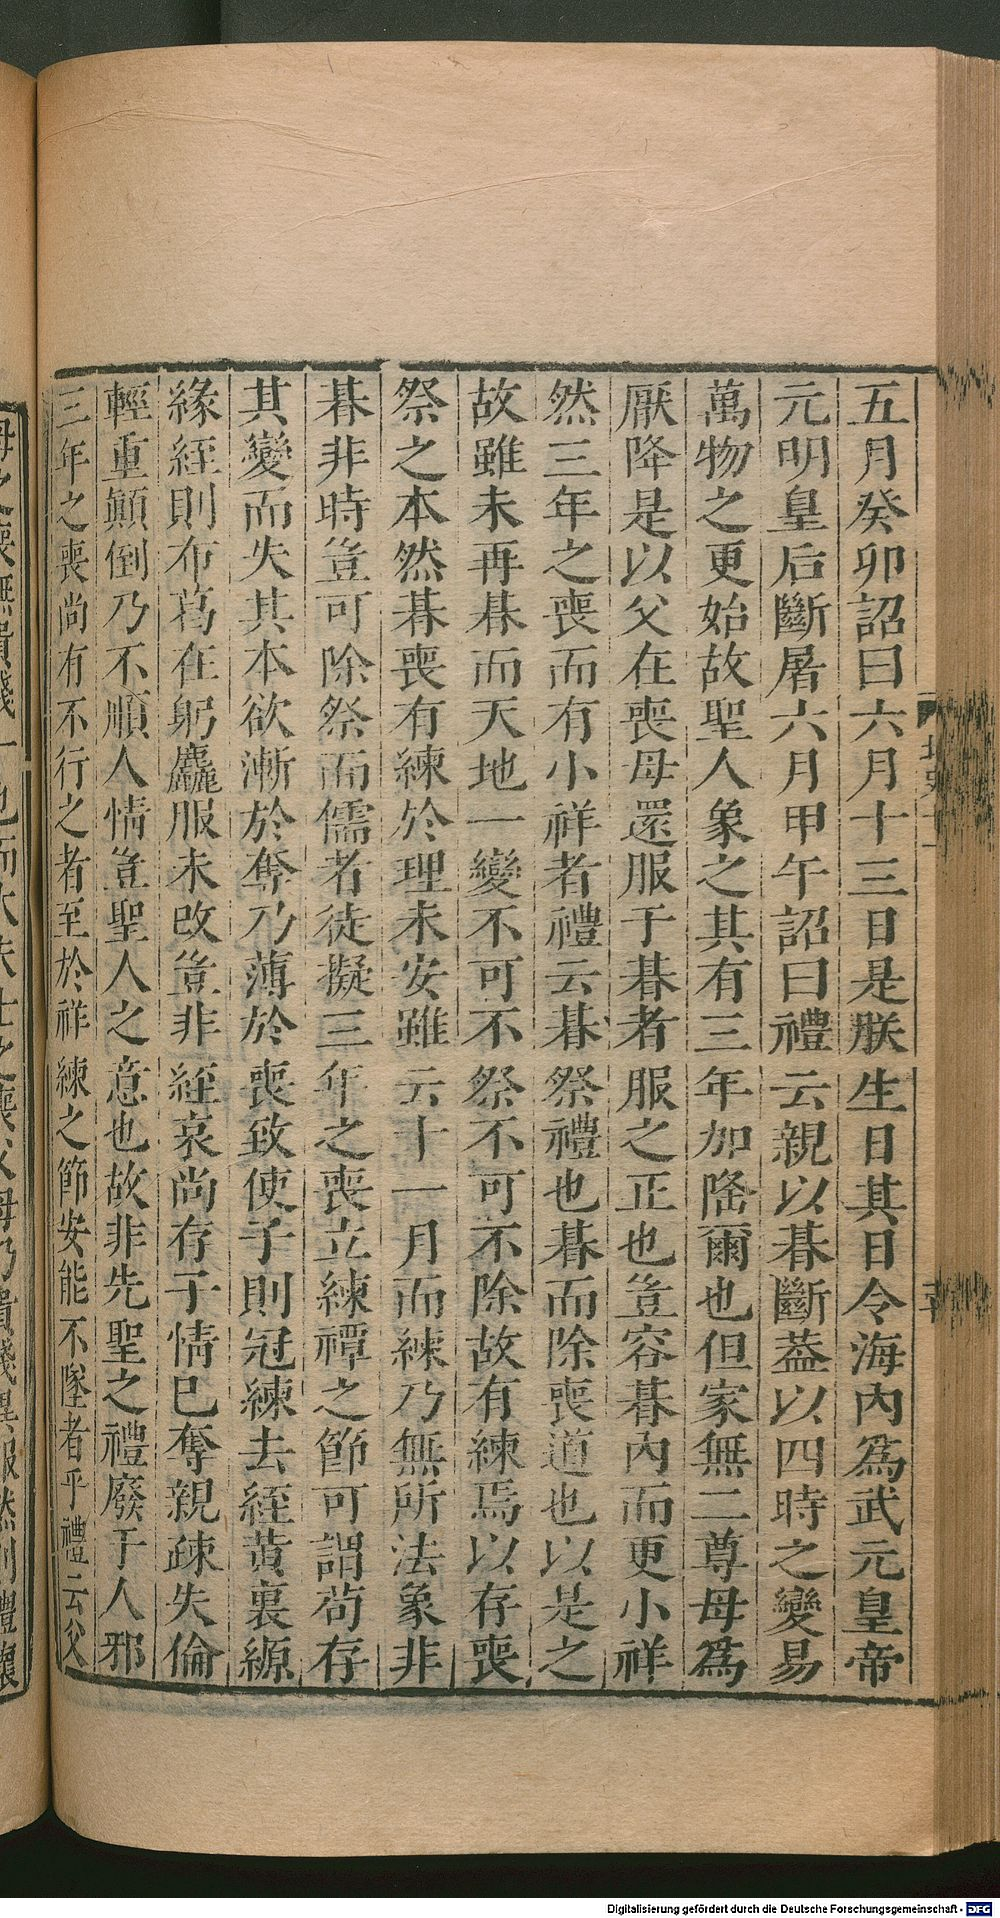 五月癸卯詔曰六月十三日是朕生日其日令海內爲武元皇帝
元明皇后斷屠六月甲午詔曰禮云親以朞斷葢以四時之變易
萬物之更始故聖人象之其有三年加隆爾也但家無二尊母爲
厭降是以父在喪母還服于朞者服之正也豈容朞內而更小祥
然三年之喪而有小祥者禮云朞祭禮也朞而除喪道也以是之
故雖未再朞而天地一變不可不祭不可不除故有練焉以存喪
祭之本然朞喪有練於理未安雖云十一月而練乃無所法象非
朞非時豈可除祭而儒者徒擬三年之喪立練禫之節可謂苟存
其變而失其本欲漸於奪乃薄於喪致使子則冠練去絰黃裏縓
緣絰則布葛在躬麤服未改豈非絰哀尚存子情已奪親疎失倫
輕重顛倒乃不順人情豈聖人之意也故非先聖之禮廢于人邪
三年之喪尚有不行之者至於祥練之節安能不墜者乎禮云父
Digitalisierung gefördert durch die Deutsche Forschungsgemeinschaft - DFG